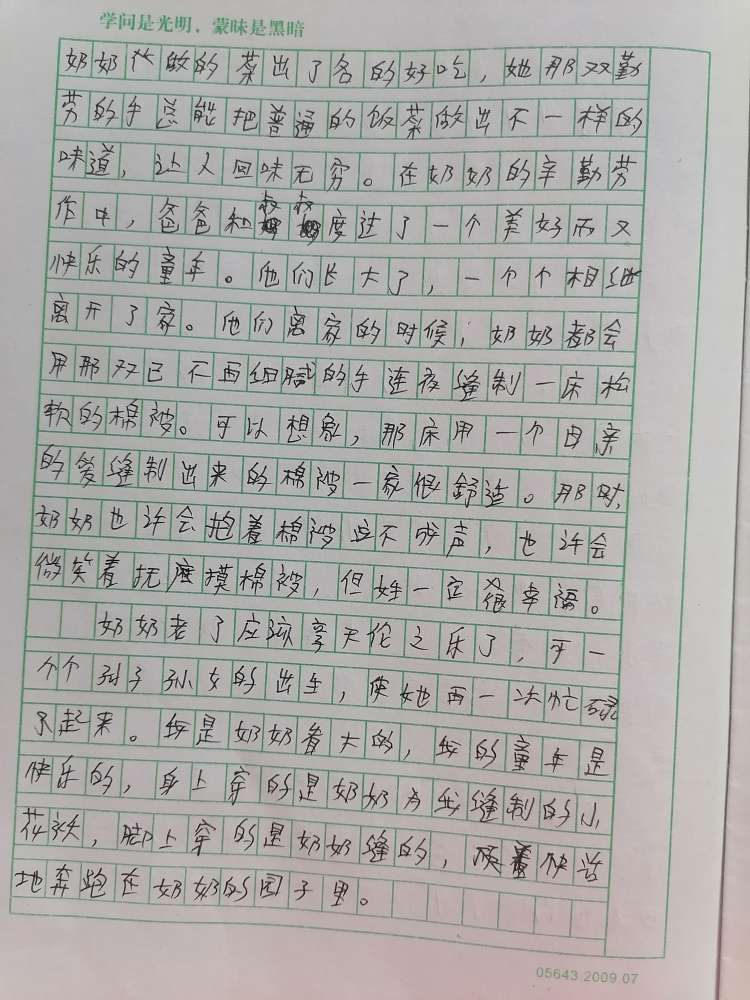 学问是光明，蒙昧是黑暗
奶奶做的菜出了名的好吃，她那双勤
劳的手总能把普通的饭菜做出不一样的
味道，让人回味无穷。在奶奶的辛勤劳
作中，爸爸和叔叔度过了一个美好而又
快乐的童年。他们长大了，一个个相继
离开了家。他们离家的时候，奶奶都会
用那双已不再细腻的手连夜缝制一床松
软的棉被。可以想象，那床用一个母亲
的爱缝制出来的棉被一家很舒适。那时，
奶奶也许会抱着棉被泣不成声，也许会
微笑着抚摸棉被，但她一定很幸福。
奶奶老了应该享天伦之乐了，可一
个个孙子孙女的出生，使她再一次忙碌
了起来。我是奶奶看大的，我的童年是
快乐的，身上穿的是奶奶为我缝制的小
花袄，脚上穿的是奶奶缝的，快活
地奔跑在奶奶的园子里。
05643 2009 07